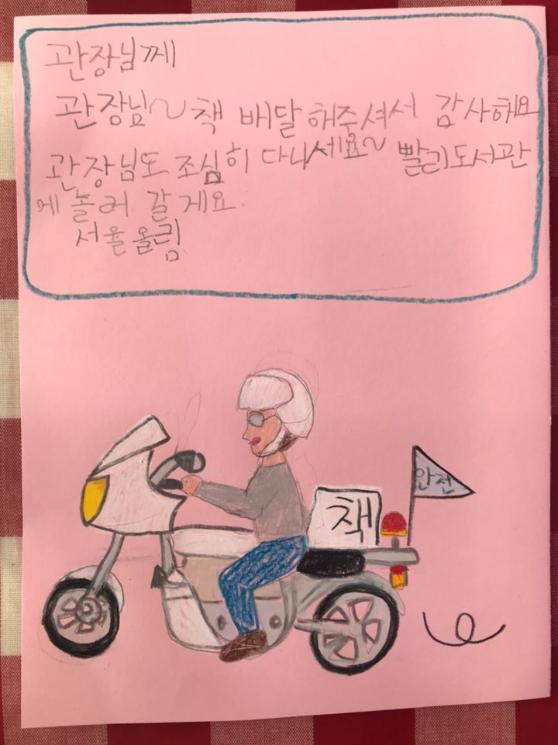 관장님께
관장님~ 책 배달 해주셔서 감사해요
관장님도 조심히 다니세요~ 빨리 도서관
에 놀러 갈게요.
서율 올림
안전
책